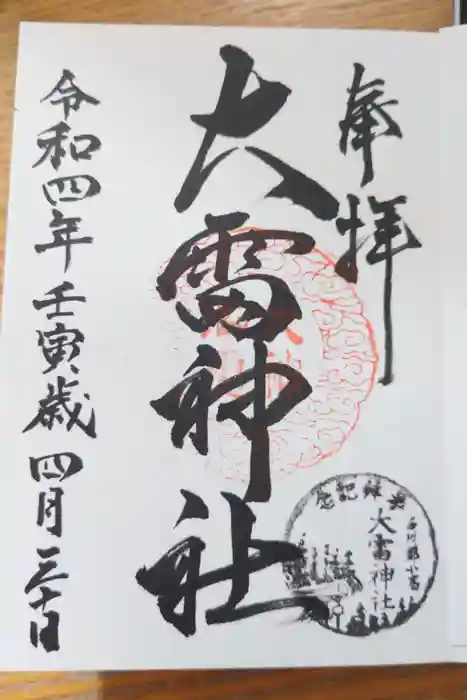 奉拝
大雷神社
令和四年壬寅歳四月三十日
参拝記念
大雷神社